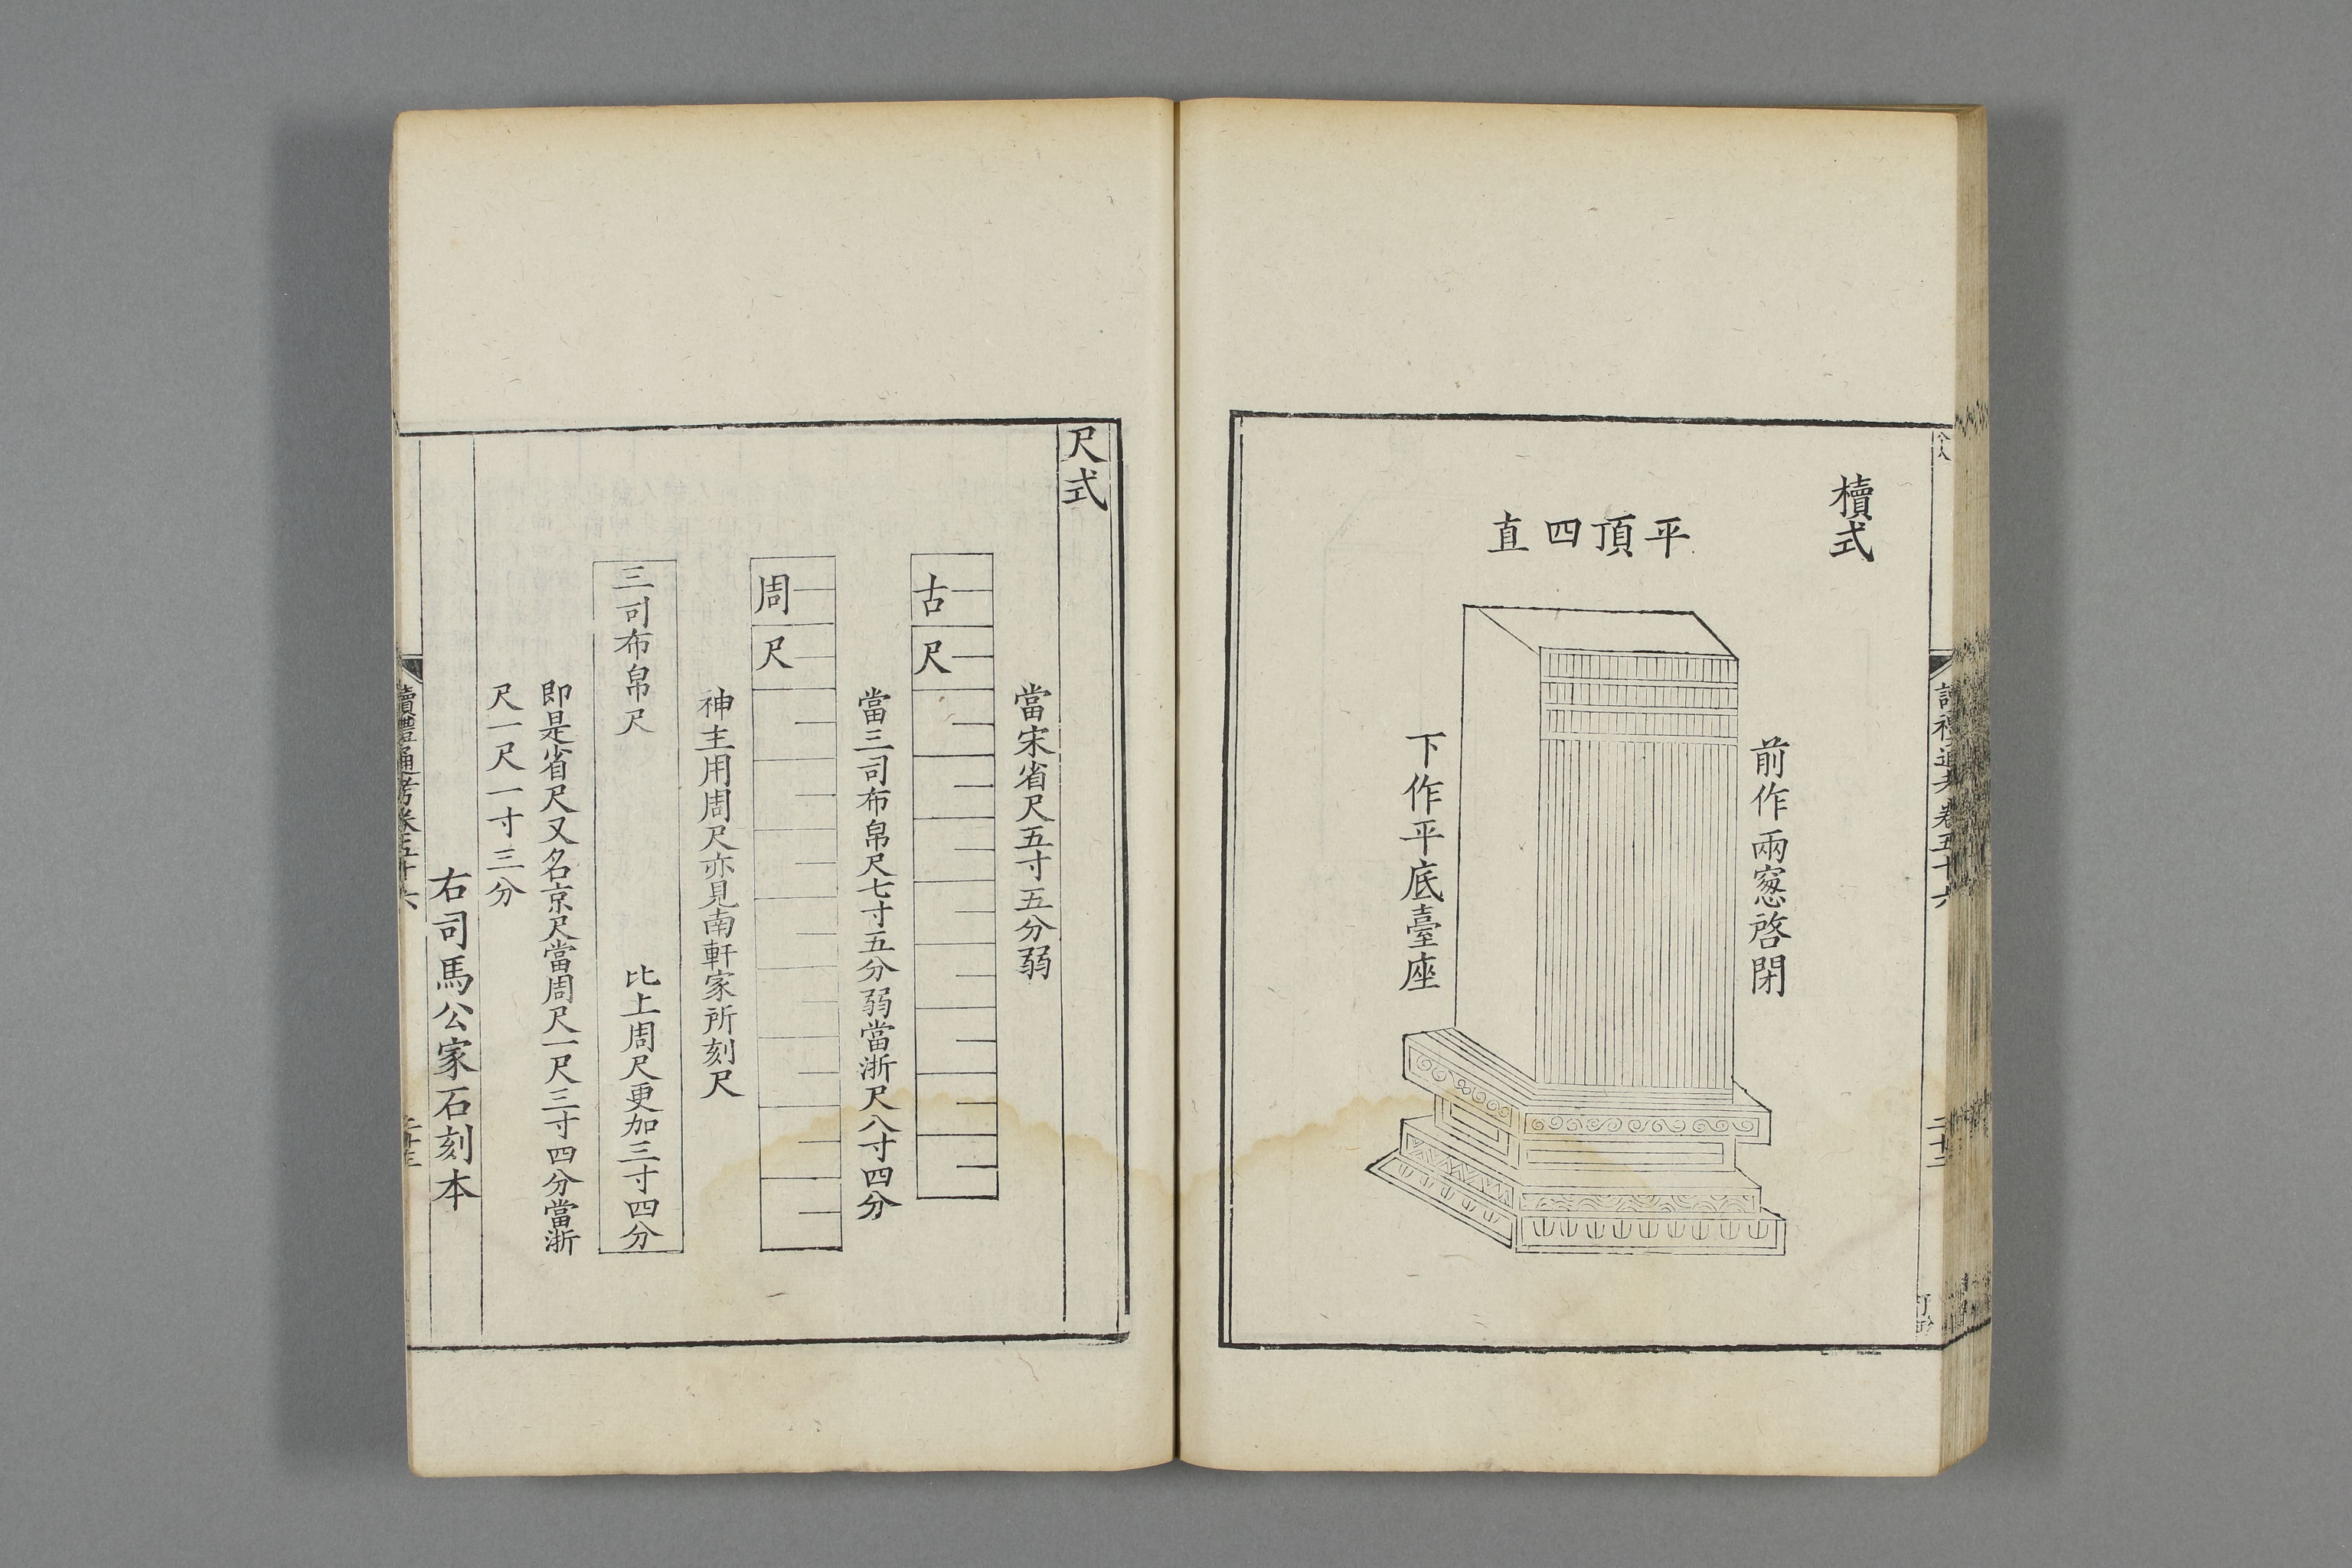 櫝式
平頂四直
前作兩窓啓閉
下作平底臺座
尺式
當宋省尺五寸五分弱
古尺
當三司布帛尺七寸五分弱當浙尺八寸四分
周尺
神主用周尺亦見南軒家所刻尺
三司布帛尺
比上周尺更加三寸四分
即是省尺又名京尺當周尺一尺三寸四分當浙
尺一尺一寸三分
右司馬公家石刻本
讀禮通考卷五十六